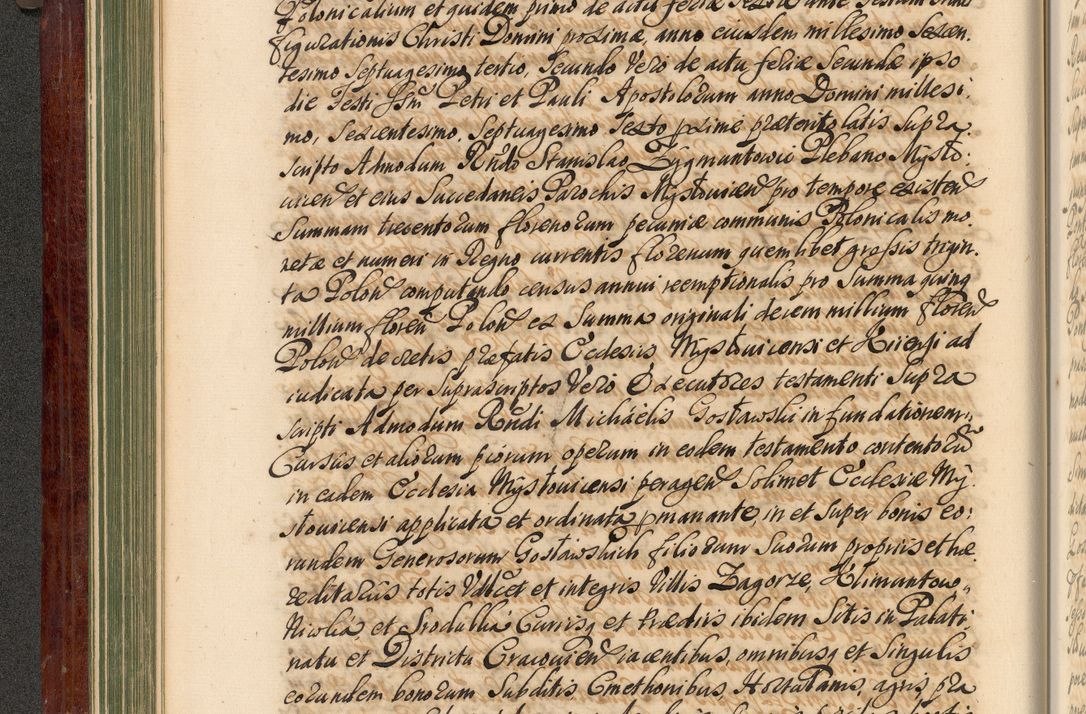 Polonicalium et quidem primo de actu feriæ sextæ ante Festum
figurationis Christi Domini proximæ, anno eiusdem millesimo Sexcen.
tesimo Septuagesimo tertio, Secundo Vero de actu feriæ Secundæ ipso
die Festi SSm Petri et Pauli Apostolorum anno Domini millesi:
mo, Sexcentesimo, Septuagesimo Sexto pxime præterito latis Supra.
scripto Admodum Rndo Stanislao Zygmantowic Plebano Mysło:
uicen et eius Succedaneis Parochis Mysłouicen pro tempore existen
Summam trecentorum florenorum pecuniæ communis Polonicalis mo
netæ et numeri in Regno currentis florenum quemlibet grossis trigin.
ta Polon computando census annui reemptionalis pro Summa quinq
millium floren Polon ex Summa originali decem millium floren
Polon decretis præfatis Ecclesiis Mysłouicensi et ad
iudicata per Suprascriptos Vero Executores testamenti Supra
scripti Admodum Rndi Michaelis Gosławski in fundationem
Cursus et aliorum piorum operum in eodem testamento contentorū
in eadem Ecclesia Mysłouicensi peragen Solimet Ecclesiæ My.
słouicensi applicata et ordinata pmanante, in et Super bonis eo:
rundem Generosorum Gosławskich filiorum Suorum propriis et hæ.
reditariis totis Vdlcet et integris Villis Zagorze, Klimantow.
Nicolia et Srodullia Curiisq et Prædiis ibidem Sitis in Palati
natu et Districtu Cracouien iacentibus, omnibusq et Singulis
eorundem bonorum Subditis Cmethonibus, Hortulanis, agris, pra